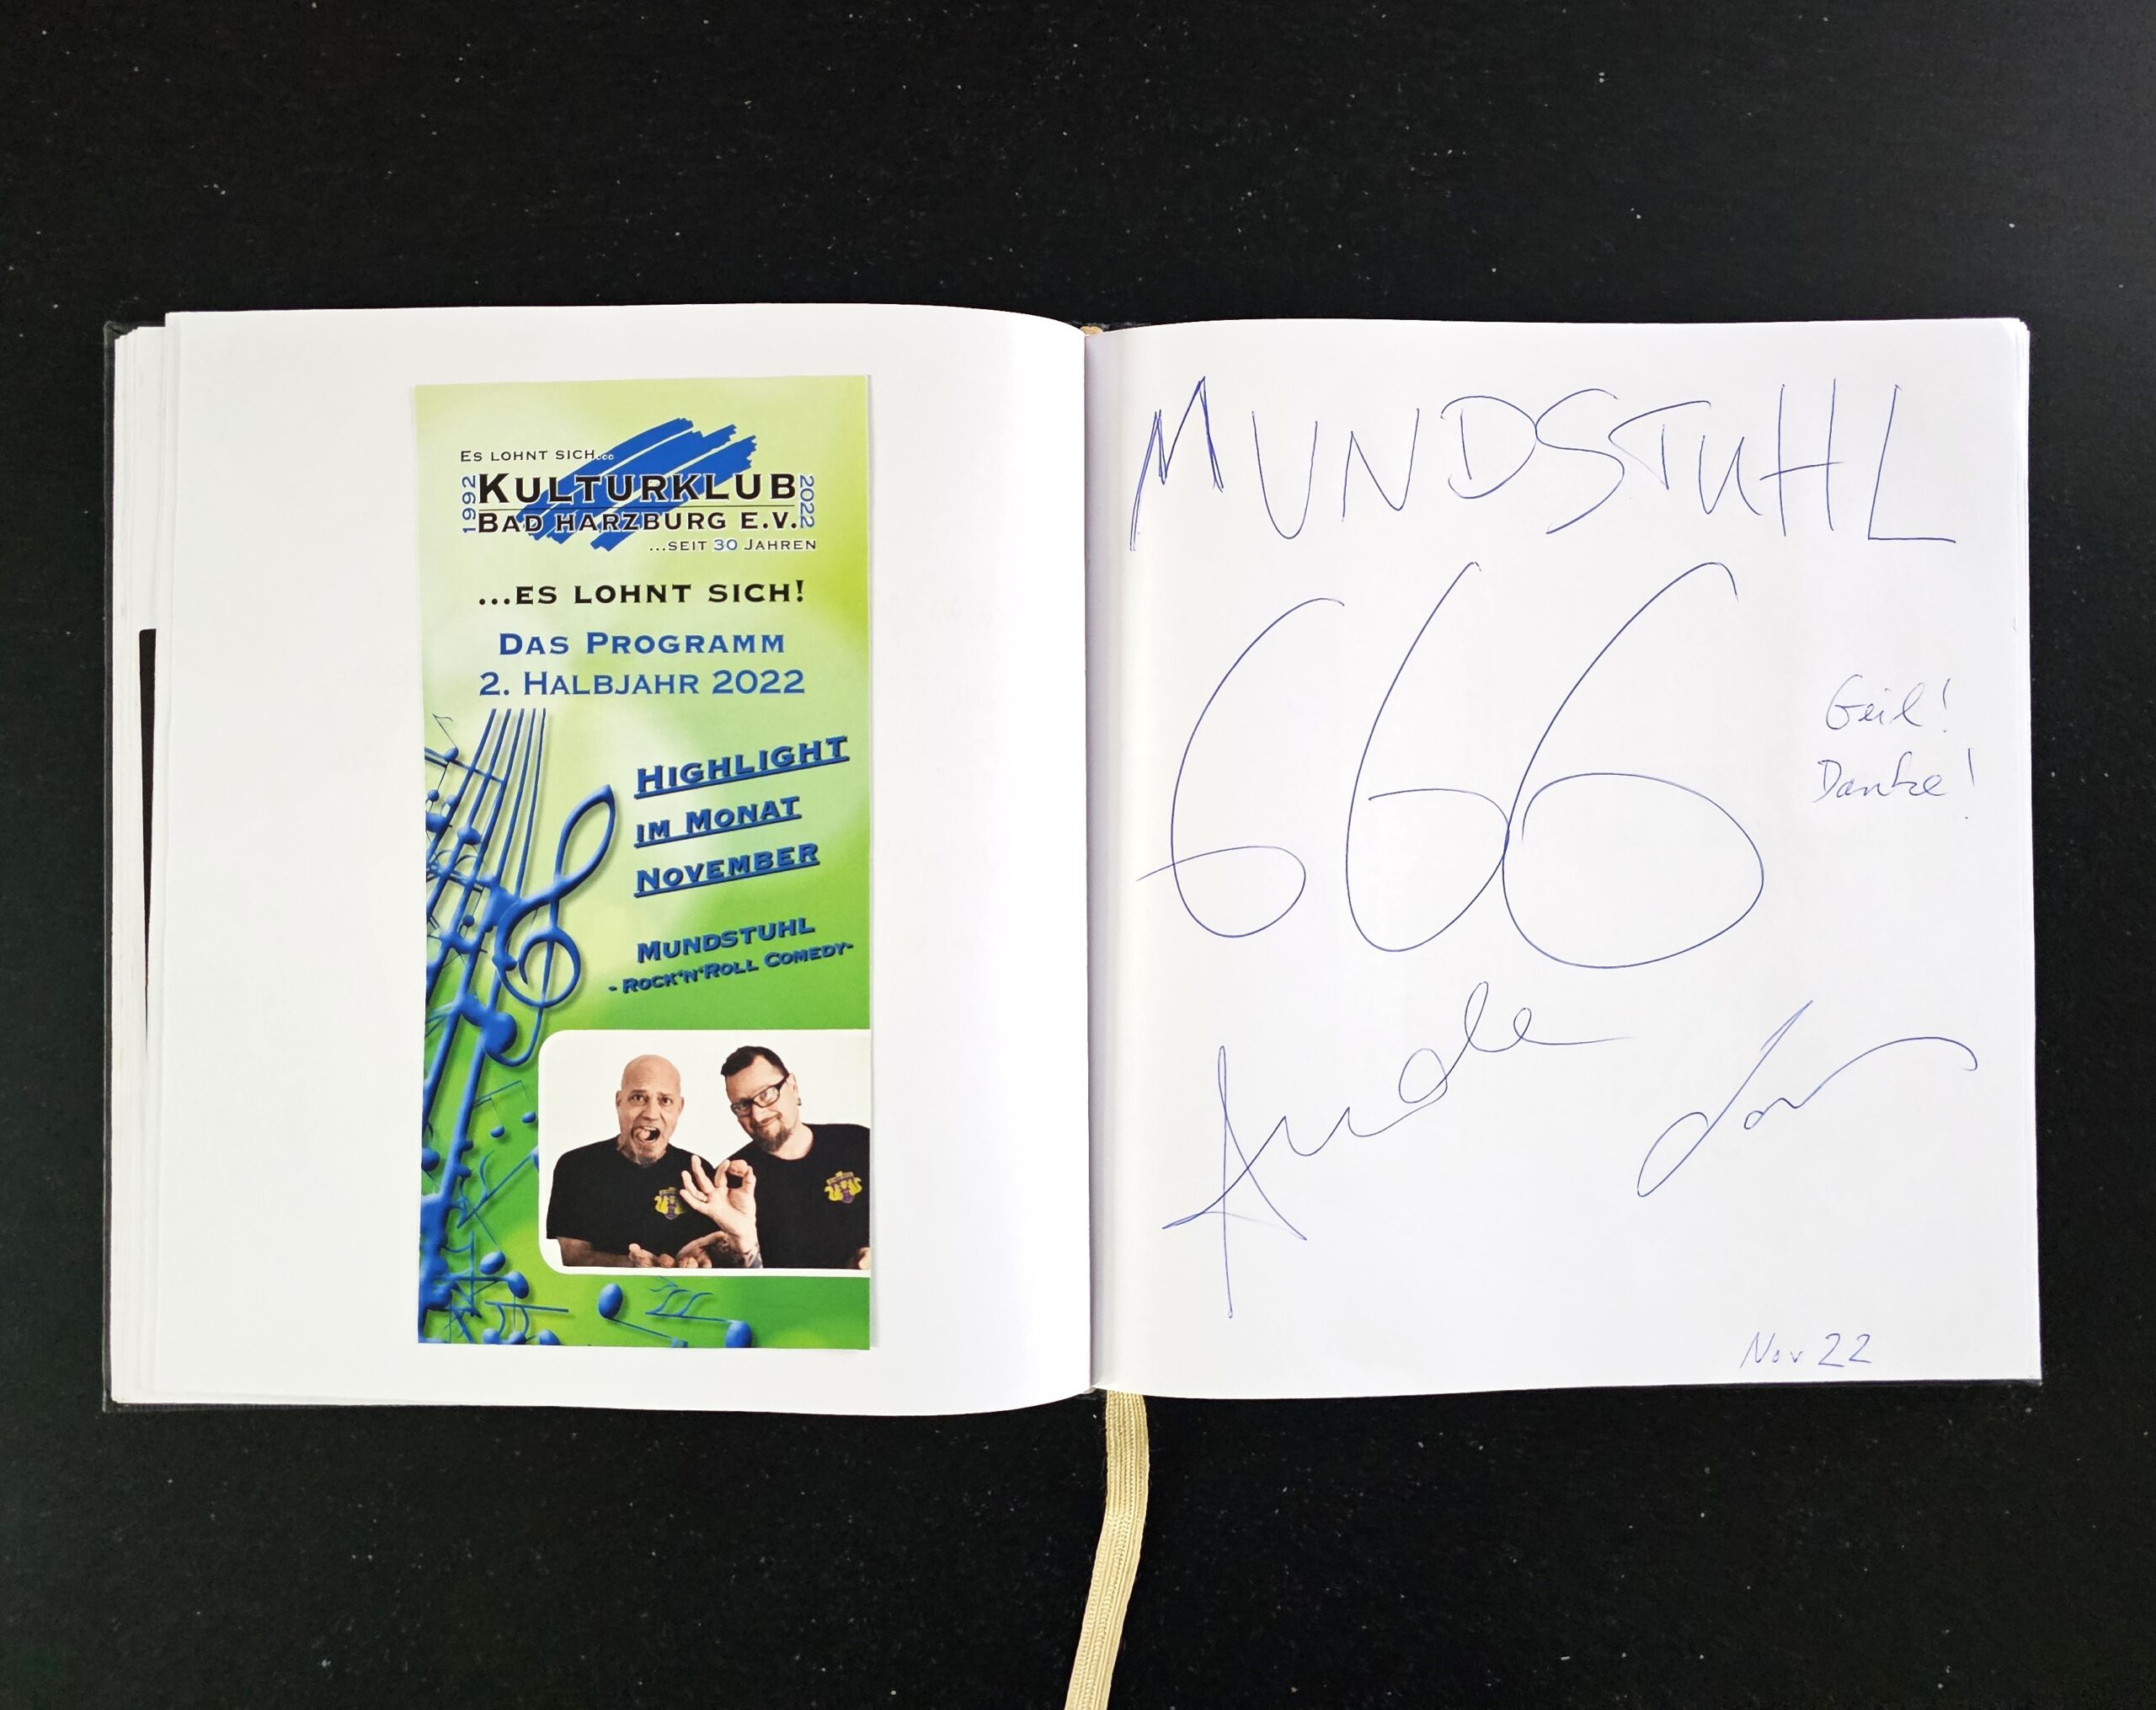 Es lohnt sich...
1992
Kulturklub
2022
Bad Harzburg e.V.
...seit 30 Jahren
...es lohnt sich!
Das Programm
2. Halbjahr 2022
Highlight
im Monat
November
Mundstuhl
- Rock'n'Roll Comedy-
MUNDSTUHL
666
Geil!
Danke!
Nov 22